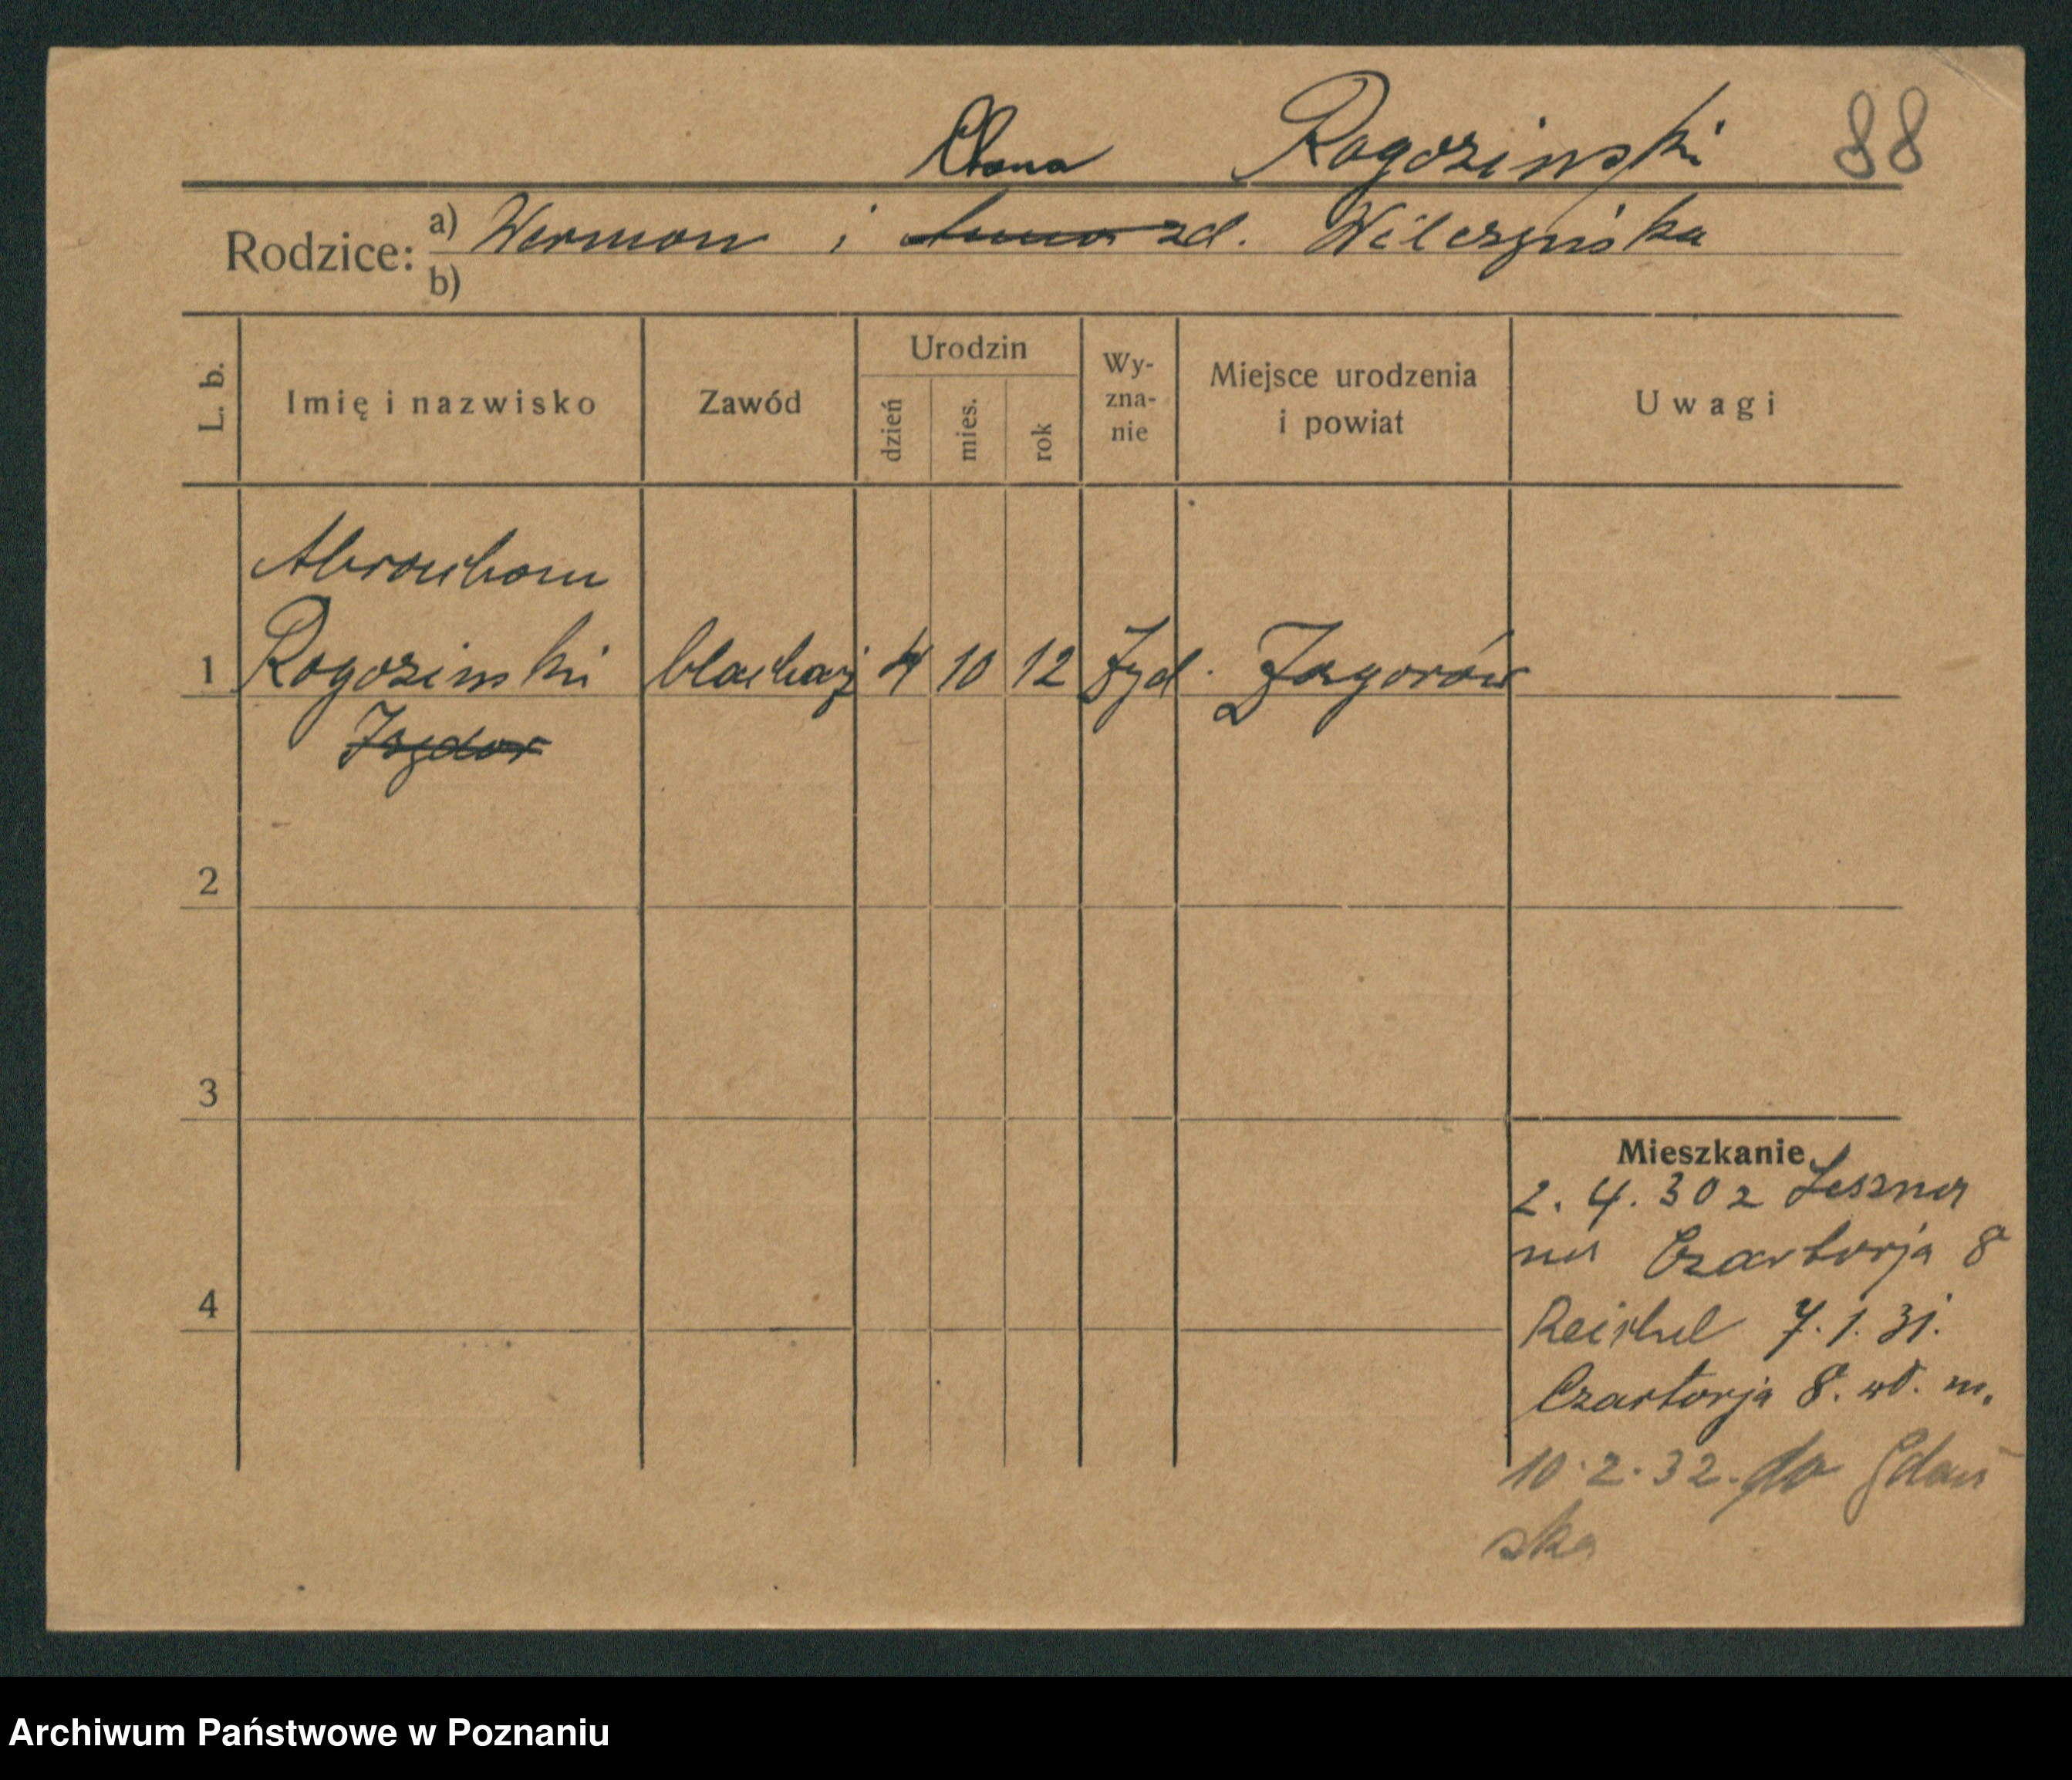 Chana Rogozinski 88
Rodzice: a) Werman i Anna zd. Wilczyńska
b)
L. b. Imię i nazwisko Zawód Urodzin dzień mies. rok Wy-zna-nie Miejsce urodzenia i powiat Uwagi
Abraham
1 Rogozinski blacharz 4 10 12 żyd. Zagorów
Izydor
2
3
4
Mieszkanie
2. 4. 30 z Leszna
na Czartorja 8
Reichel 7. 1. 31.
Czartorja 8. wł. m.
10. 2. 32. do Gdań
ska
Archiwum Państwowe w Poznaniu